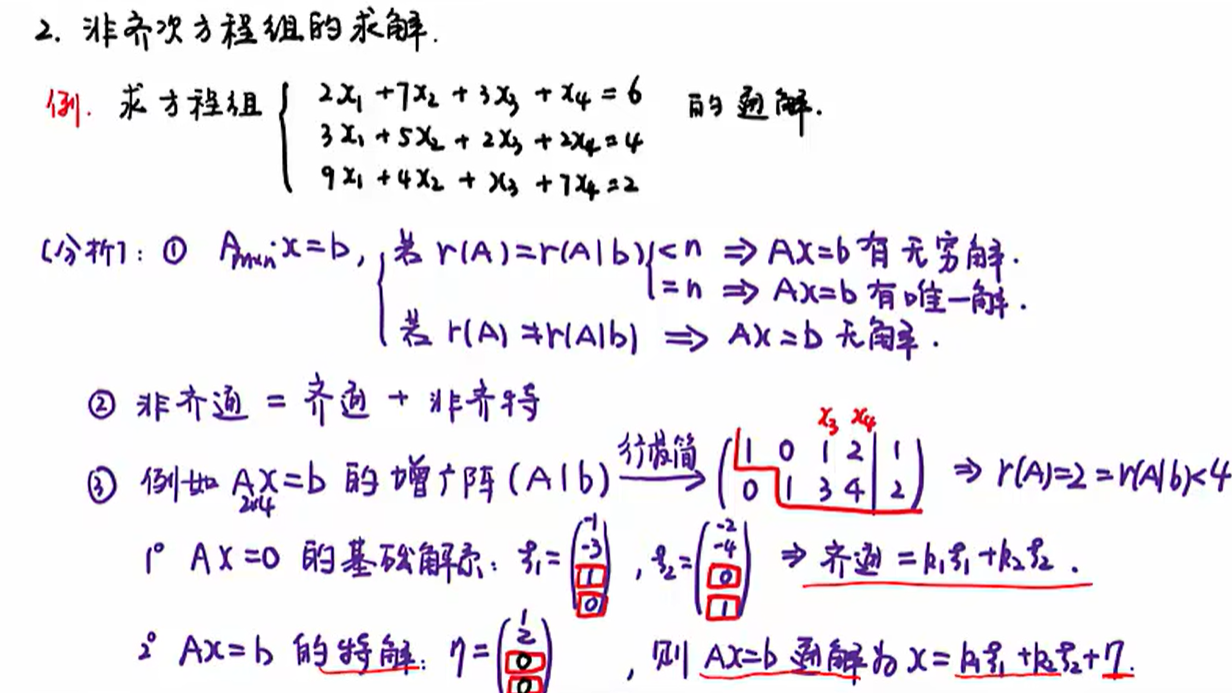 2. 非齐次方程组的求解.
例. 求方程组 { 2x₁+7x₂+3x₃+x₄=6 的通解.
3x₁+5x₂+2x₃+2x₄=4
9x₁+4x₂+x₃+7x₄=2
(分析): ① Aₘₓₙ·x=b, 若 r(A)=r(A|b) { <n ⇒ AX=b 有无穷解.
=n ⇒ AX=b 有唯一解.
若 r(A)≠r(A|b) ⇒ AX=b 无解.
② 非齐通 = 齐通 + 非齐特
x₃ x₄
③ 例如 A₂ₓ₄X=b 的增广阵(A|b) 行最简→ (1 0 1 2 | 1; 0 1 3 4 | 2) ⇒ r(A)=2=r(A|b)<4
1° AX=0 的基础解系: ξ₁=(-1 -3 1 0), ξ₂=(-2 -4 0 1) ⇒ 齐通=k₁ξ₁+k₂ξ₂.
2° AX=b 的特解: η=(1 2 0 0), 则 AX=b 通解为 x=k₁ξ₁+k₂ξ₂+η.